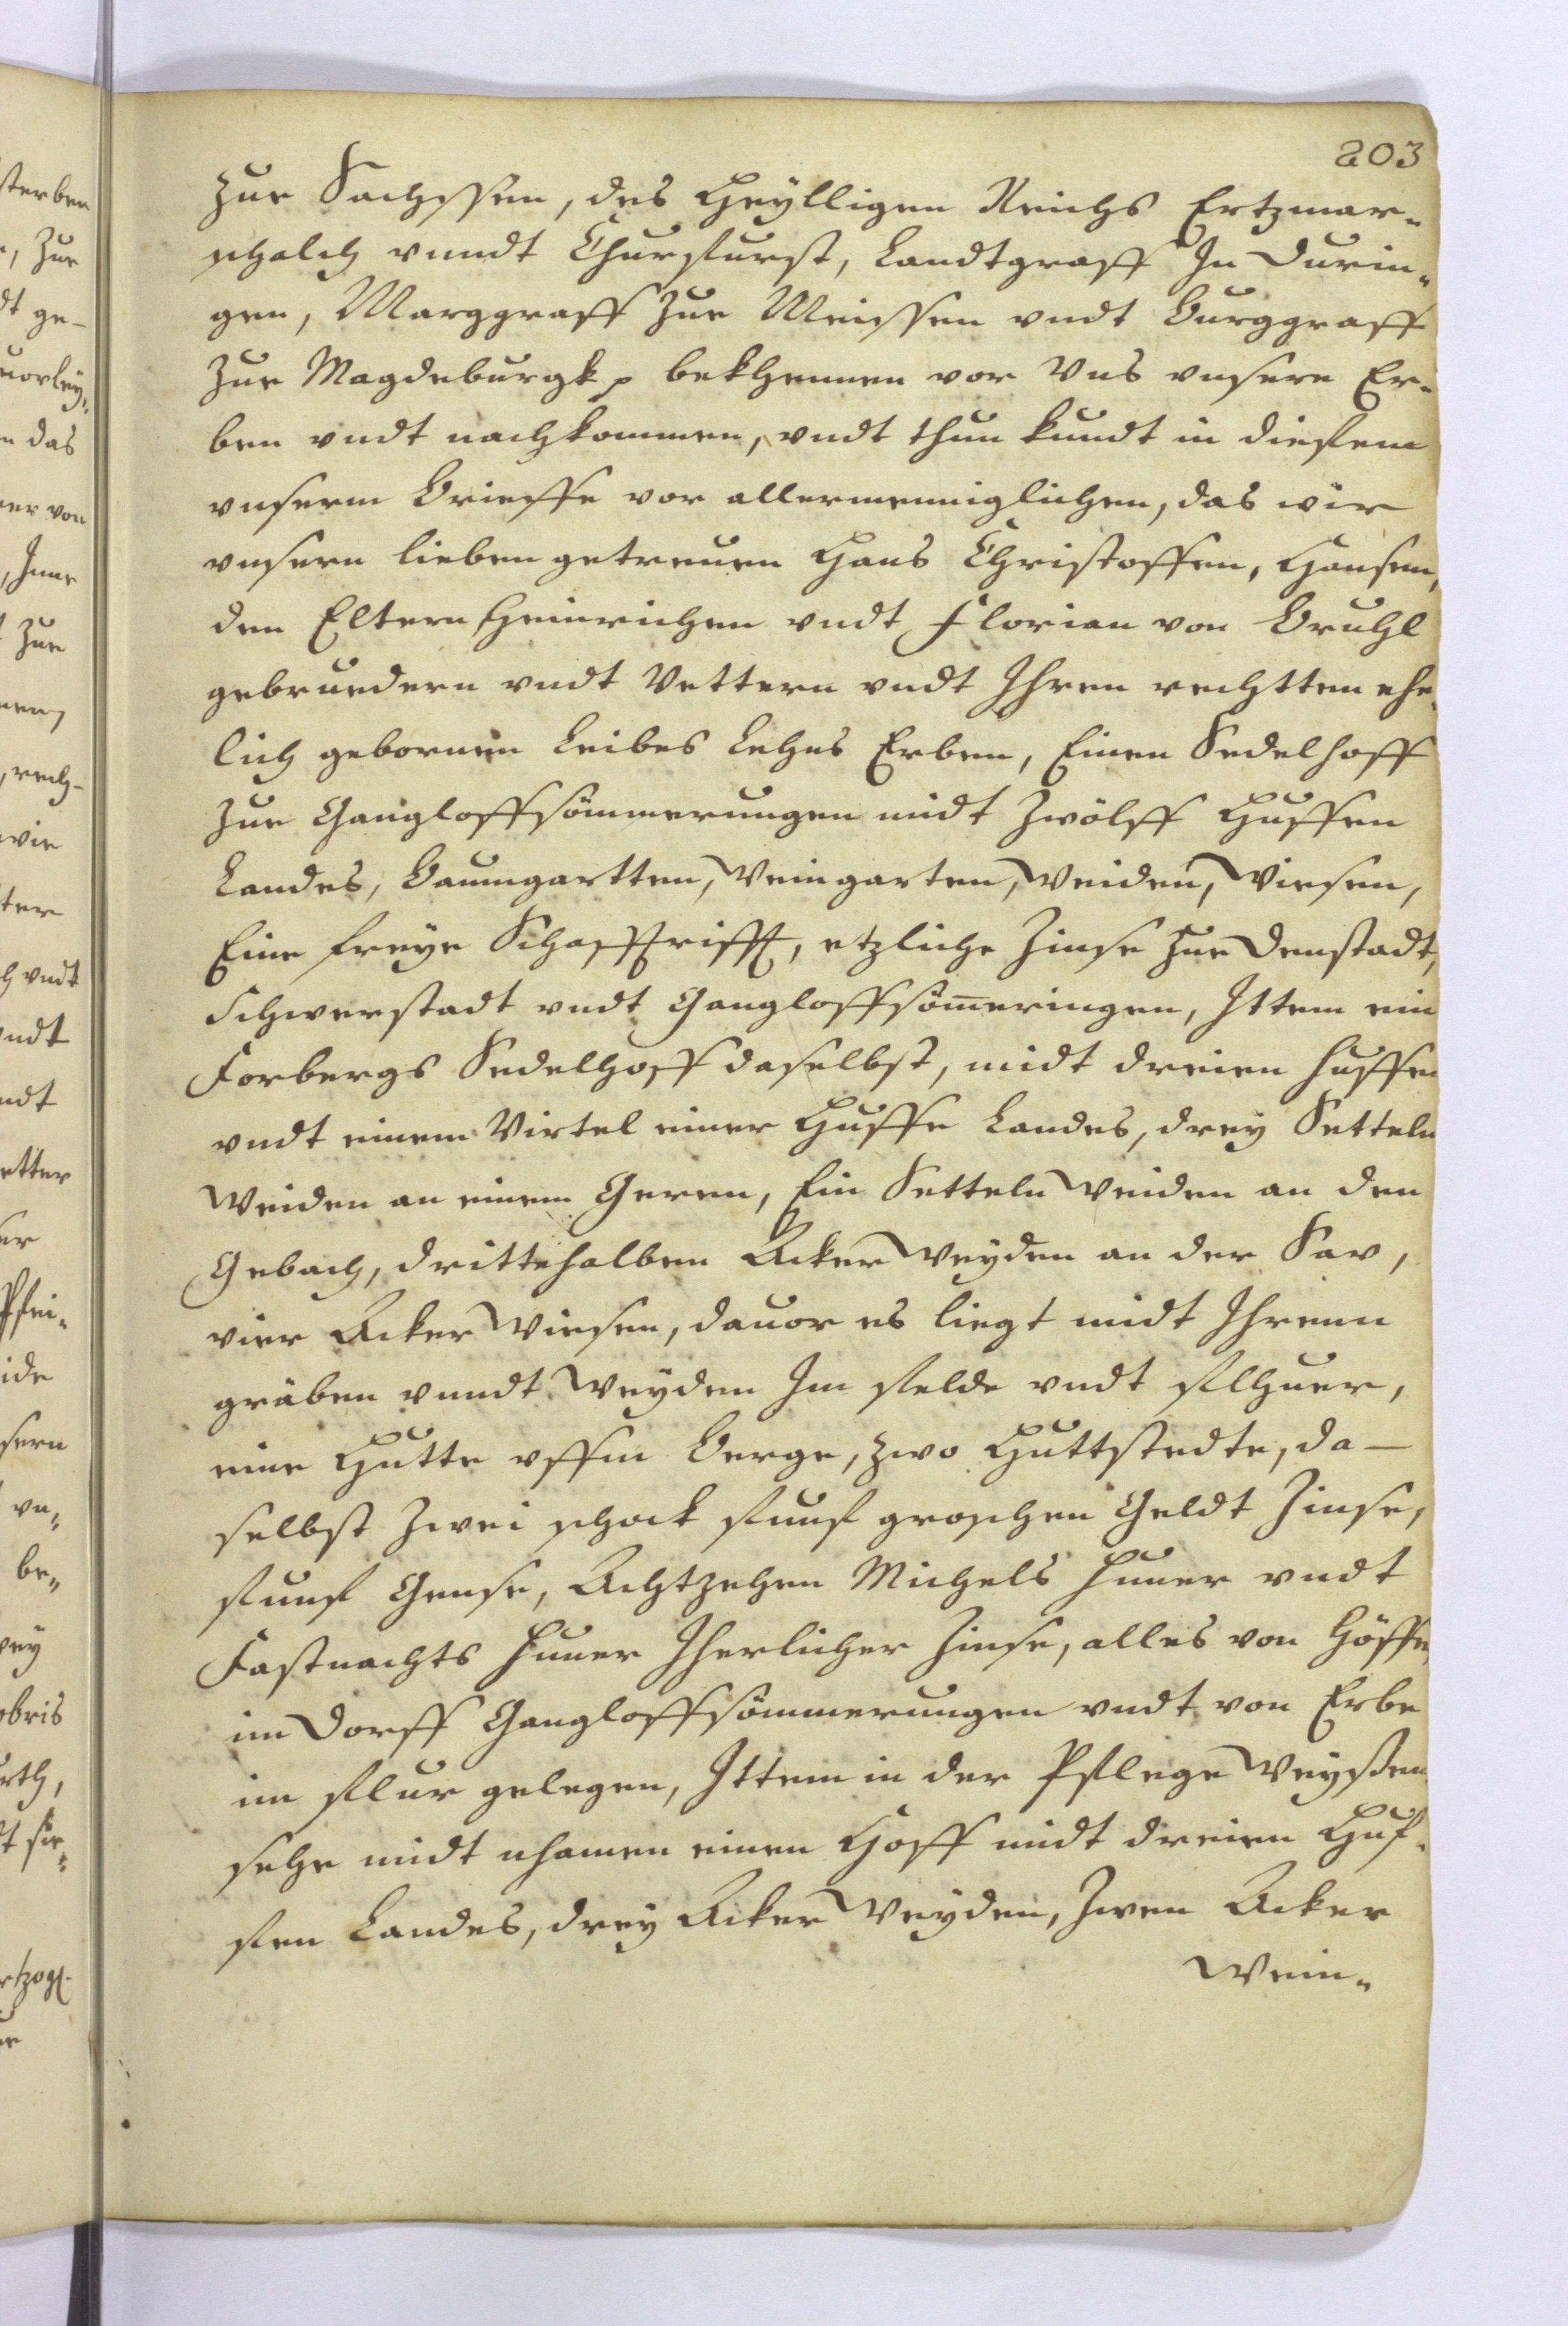 203
zue Sachssen, des Heylligen Reichs Ertzmar-
schalch vnndt Churfurst, Landtgraff In Durin-
gen, Marggraff Zue Meissen vndt Burggraff
Zue Magdeburgk p bekhennen vor Vns vnsere Er-
ben vndt nachkommen, vndt thun kundt in diesem
vnserm Brieffe vor allermenniglichen, das wir
vnsern lieben getreuen Hans Christoffen, Hansen,
den Eltern Heinrichen vndt Florian von Bruhl
gebruedern vndt Vettern vndt Ihren rechtten ehe-
lich gebornen Leibes Lehns Erben, Einen Sedelhoff
Zue Gangloffsömmerungen midt Zwölff Huffen
Landes, Baumgartten, Weingarten, Weiden, Wiesen,
Eine freye Schafftrifft, etzliche Zinse zue Denstadt,
Schwerstadt vndt Gangloffsömeringen, Ittem ein
Forbergs Sedelhoff daselbst, midt dreien Huffen
vndt einem Virtel einer Huffe Landes, drey Setteln
Weiden an einem Geren, Ein Setteln Weiden an den
Gebach, drittehalben Acker Weyden an der Sav,
vier Acker Wiesen, dauor es liegt midt Ihrenn
gräben vnndt Weyden Im felde vndt flhuer,
eine Hutte vffm Berge, zwo Huttstedte, da-
selbst Zwei schock funf groschen Geldt Zinse,
funf Gense, Achtzehen Michels Huner vndt
Fastnachts Huner Iherlicher Zinse, alles von Höffen
im Dorff Gangloffsömmerungen vndt von Erbe
im flur gelegen, Ittem in der Pflege Weyssen
sehe midt nhamen einen Hoff midt dreien Huf-
fen Landes, drey Acker Weyden, Zwen Acker
Wein-